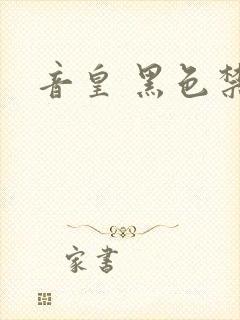 音皇 黑色禁
家书